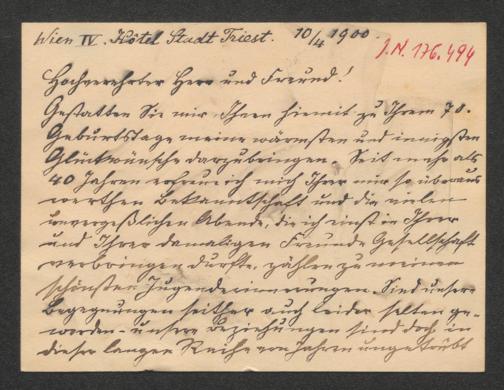 Wien IV. Hôtel Stadt Triest. 10/4 1900.
J.N. 176.494
Hochverehrter Herr und Freund!
Gestatten Sie mir Ihnen hiemit zu Ihrem 70.
Geburtstage meine wärmsten und innigsten
Glückwünsche darzubringen. Seit mehr als
40 Jahren erfreue ich mich Ihrer mir so überaus
werthen Bekanntschaft und die vielen
unvergeßlichen Abende, die ich einst in Ihrer
und Ihrer damaligen Freunde Gesellschaft
verbringen durfte, zählen zu meinen
schönsten Jugenderinnerungen. Sind unsere
Begegnungen seither auch leider selten ge-
worden - unsere Beziehungen sind doch in
dieser langen Reihe von Jahren ungetrübt